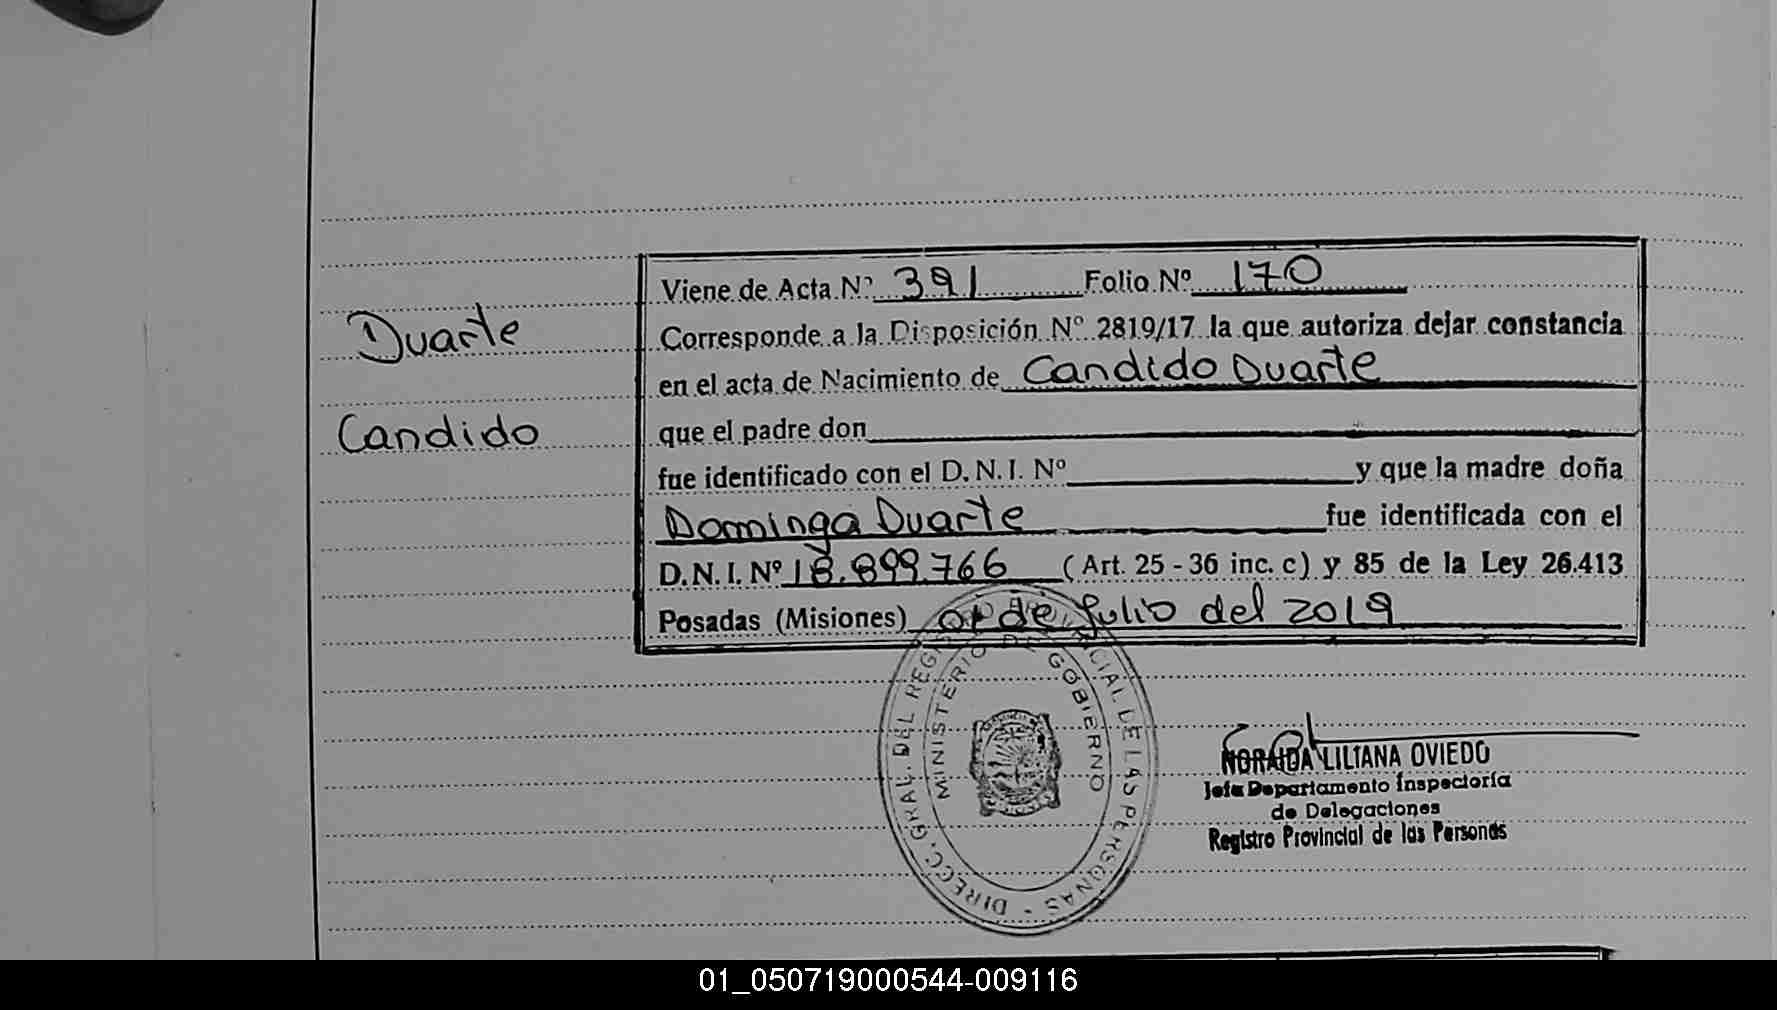 Viene de Acta Nº 391 Folio Nº 170
Corresponde a la Disposición Nº 2819/17 la que autoriza dejar constancia
en el acta de Nacimiento de Candido Duarte
que el padre don
fue identificado con el D.N.I. Nº y que la madre doña
Dominga Duarte fue identificada con el
D.N.I. Nº 18.899.766 (Art. 25 - 36 inc. c) y 85 de la Ley 26.413
Posadas (Misiones) 01 de Julio del 2019
Duarte
Candido
DIRECC. GRAL. DEL REGISTRO PROVINCIAL DE LAS PERSONAS -
MINISTERIO DE GOBIERNO
NORAIDA LILIANA OVIEDO
Jefa Departamento Inspectoría
de Delegaciones
Registro Provincial de las Personas
01_050719000544-009116